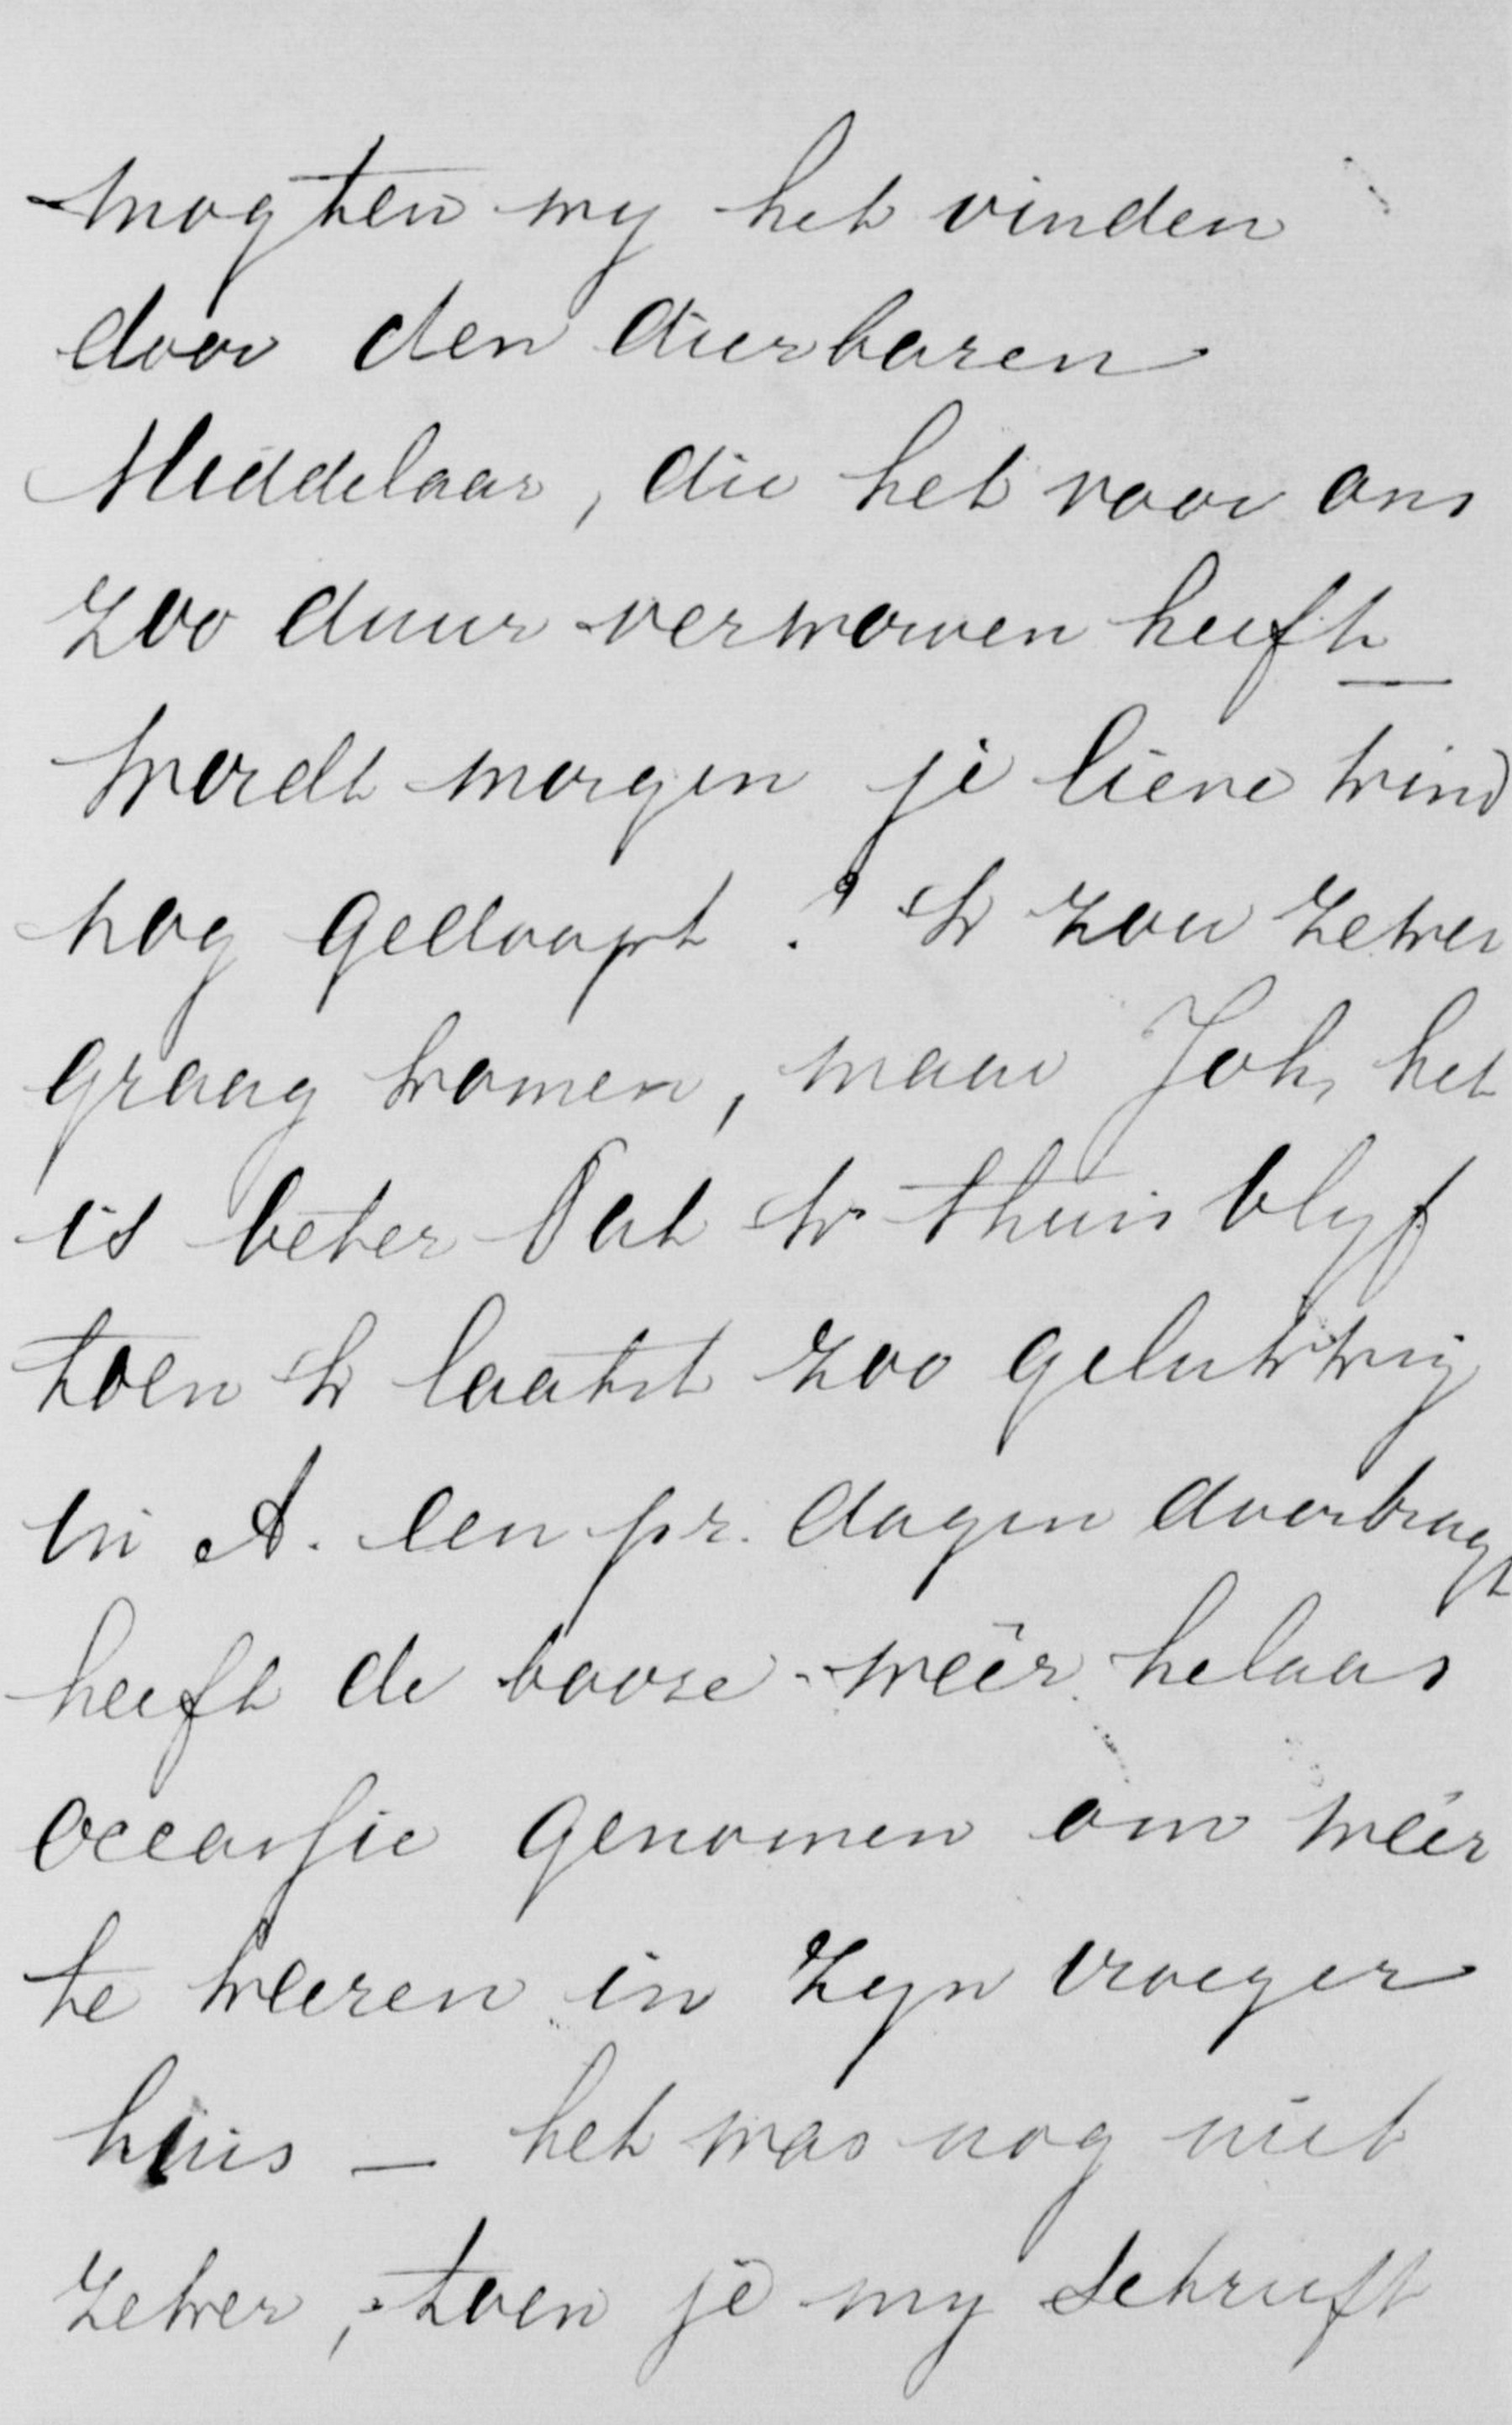 mogten wy het vinden
door den dierbaren
Middelaar, die het voor ons
zoo duur verworven heeft _
Wordt morgen je lieve kind
nog gedoopt? Ik zou zeker
graag komen, maar Joh, het
is beter dat ik thuis blyf
toen ik laatst zoo gelukkig
in A. een pr. dagen doorbragt
heeft de booze weêr helaas
occasie genomen om weêr
te keeren in zyn vroeger
huis — het was nog niet
zeker, toen je my schreeft